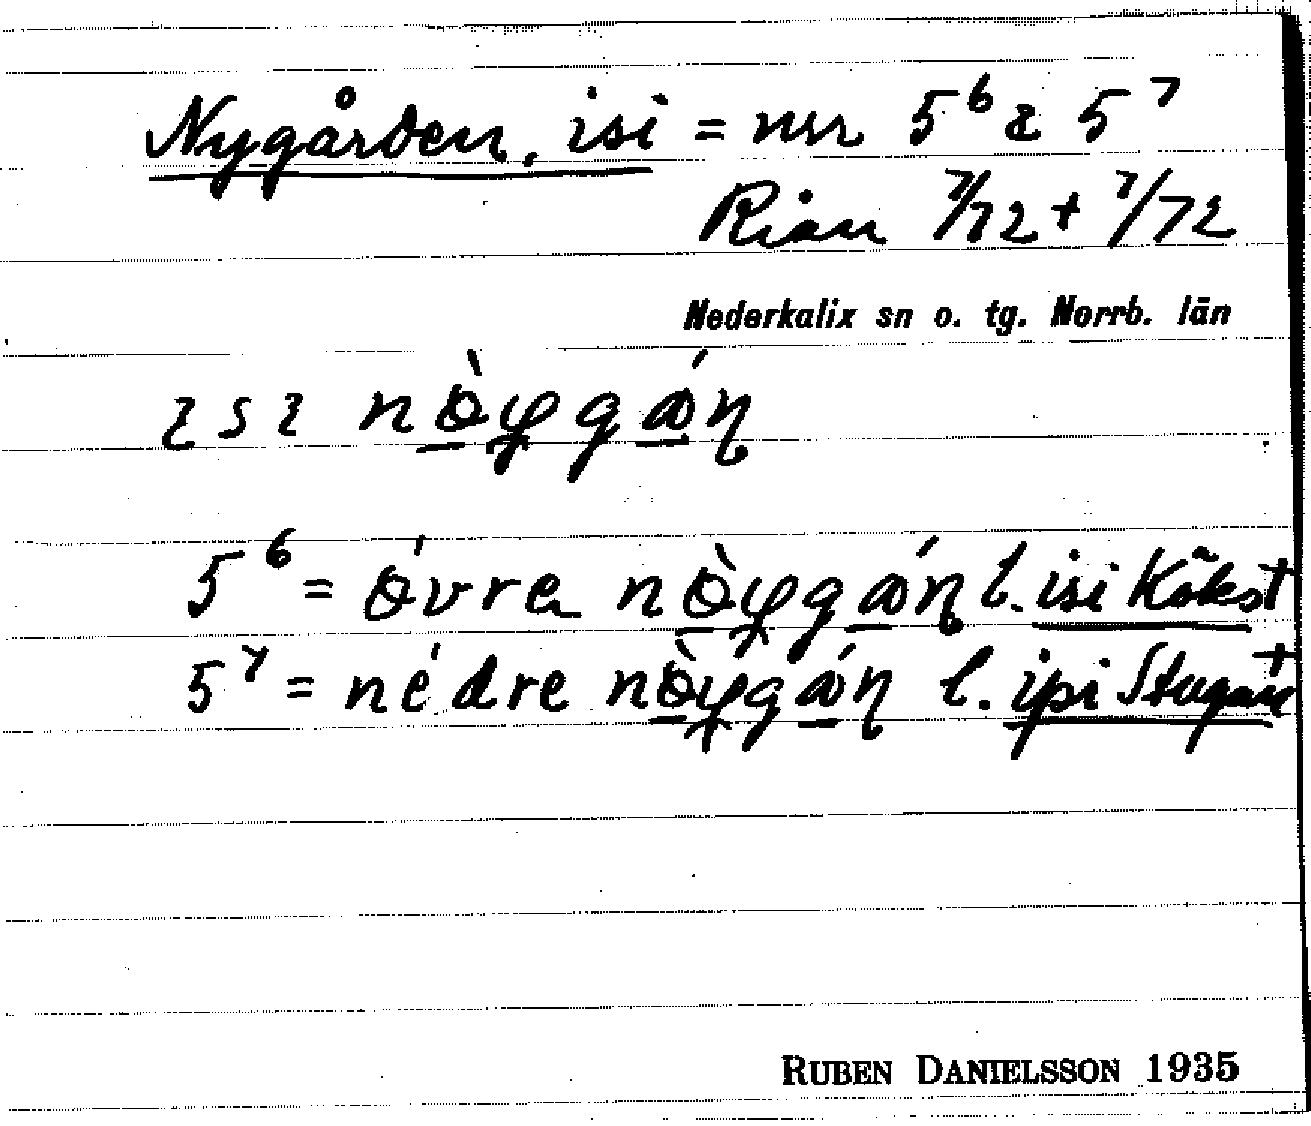 Nygården, isi = nrr 5⁶ & 5⁷
Rian 7/72 + 7/72
Nederkalix sn o. tg. Norrb. län
ɩsɩ nò̱y̯gá̱ɳ
5⁶ = óvra nò̱y̯gá̱ɳ l. isi
5⁷ = nédre nò̱y̯gá̱ɳ l. ipi
RUBEN DANIELSSON 1935